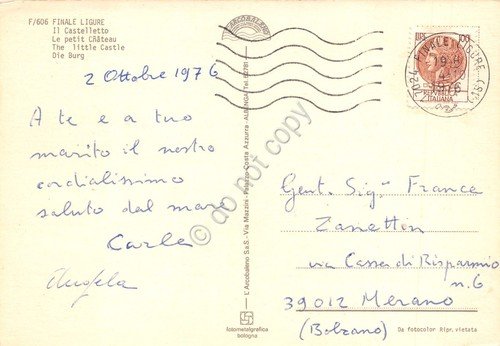 F/606 FINALE LIGURE
Il Castelletto
Le petit Château
The little Castle
Die Burg
2 Ottobre 1976
A te e a tuo
marito il nostro
cordialissimo
saluto dal mare
Carla
Angela
L'Arcobaleno S.a.S. - Via Mazzini - Palazzo Costa Azzurra - ALBENGA Tel.
fotometalgrafica
bologna
ARCOBALENO
do not copy
LIRE 100
REPUBBLICA
ITALIANA
FINALE LIGURE (SV)
1976
Gent. Sig.ra Franca
Zanettin
via Cassa di Risparmio
n. 6
39012 Merano
(Bolzano)
Da fotocolor Ripr. vietata